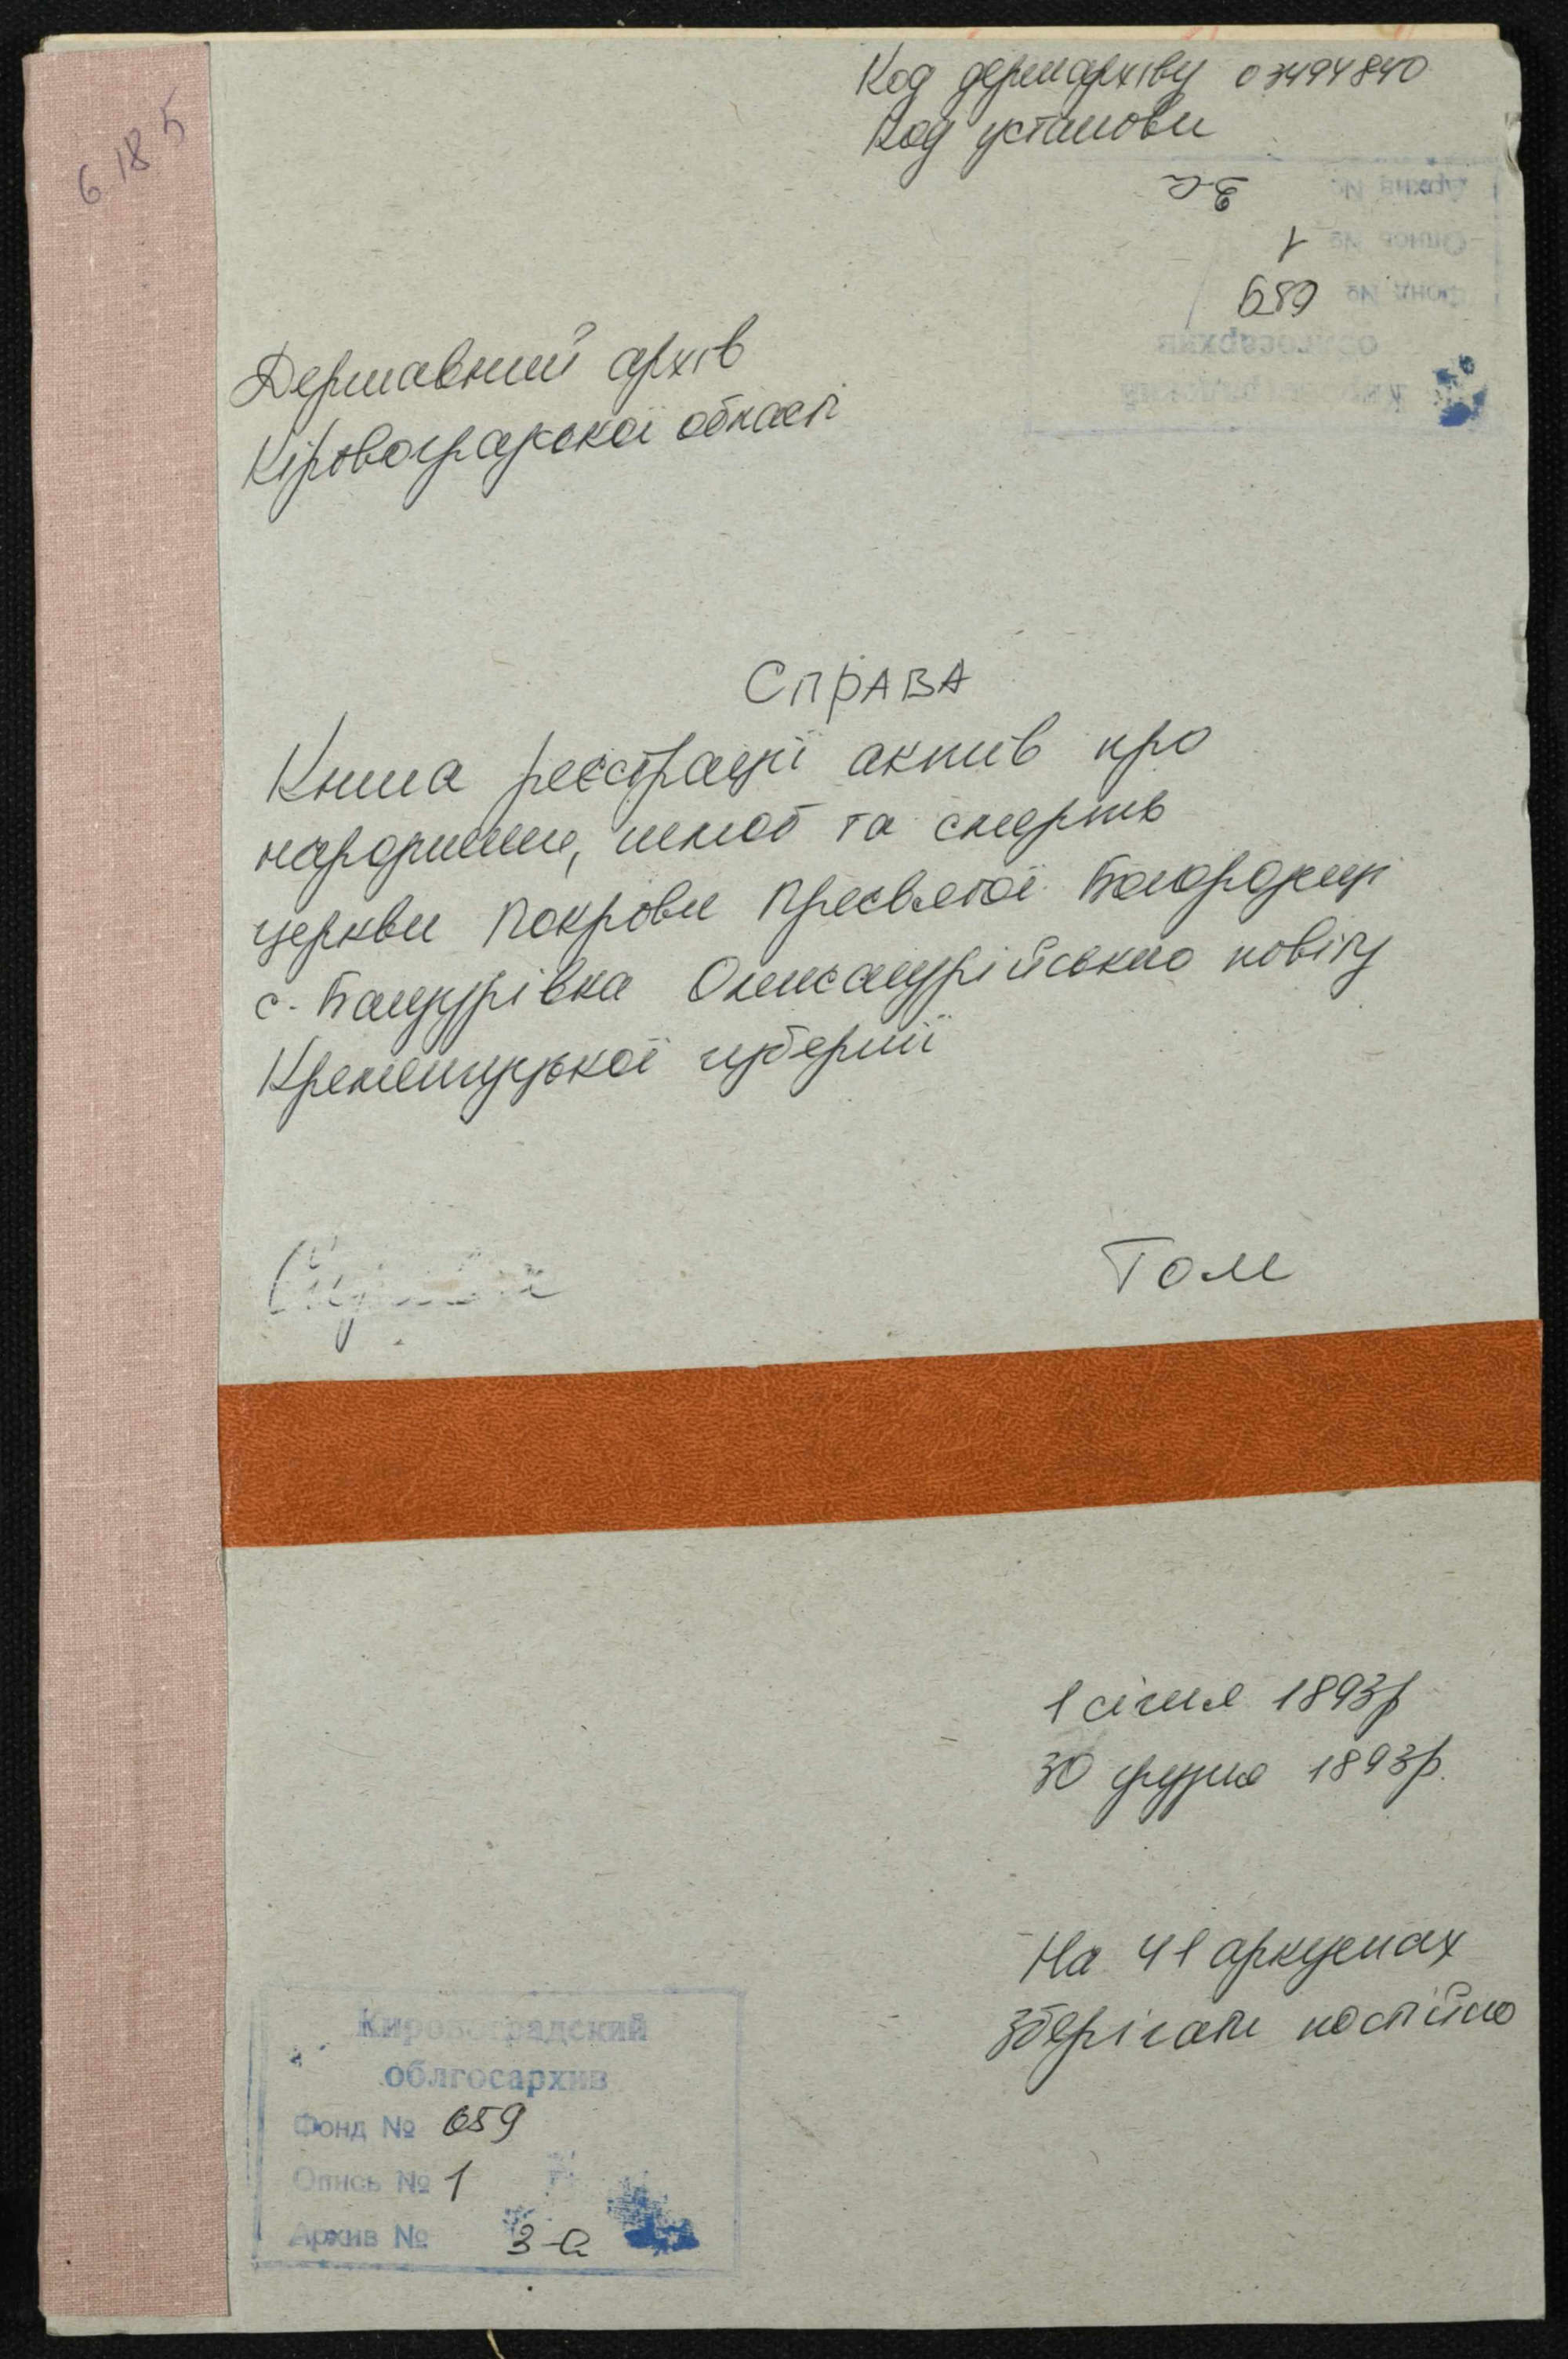 6 18 5
Код держархіву 03494840
Код установи
Архив №  3-а
Опись №  1
Фонд №  659
облгосархив
Державний архів
Кіровоградської області
СПРАВА
Книга реєстрації актів про
народження, шлюб та смерть
церкви Покрови Пресвятої Богородиці
с. Бандурівка Олександрійського повіту
Кременчуцької губернії
Том
1 січня 1893р
30 грудня 1893р.
На 41 аркушах
Зберігати постійно
Кировоградский
облгосархив
Фонд № 659
Опись № 1
Архив № 3-а